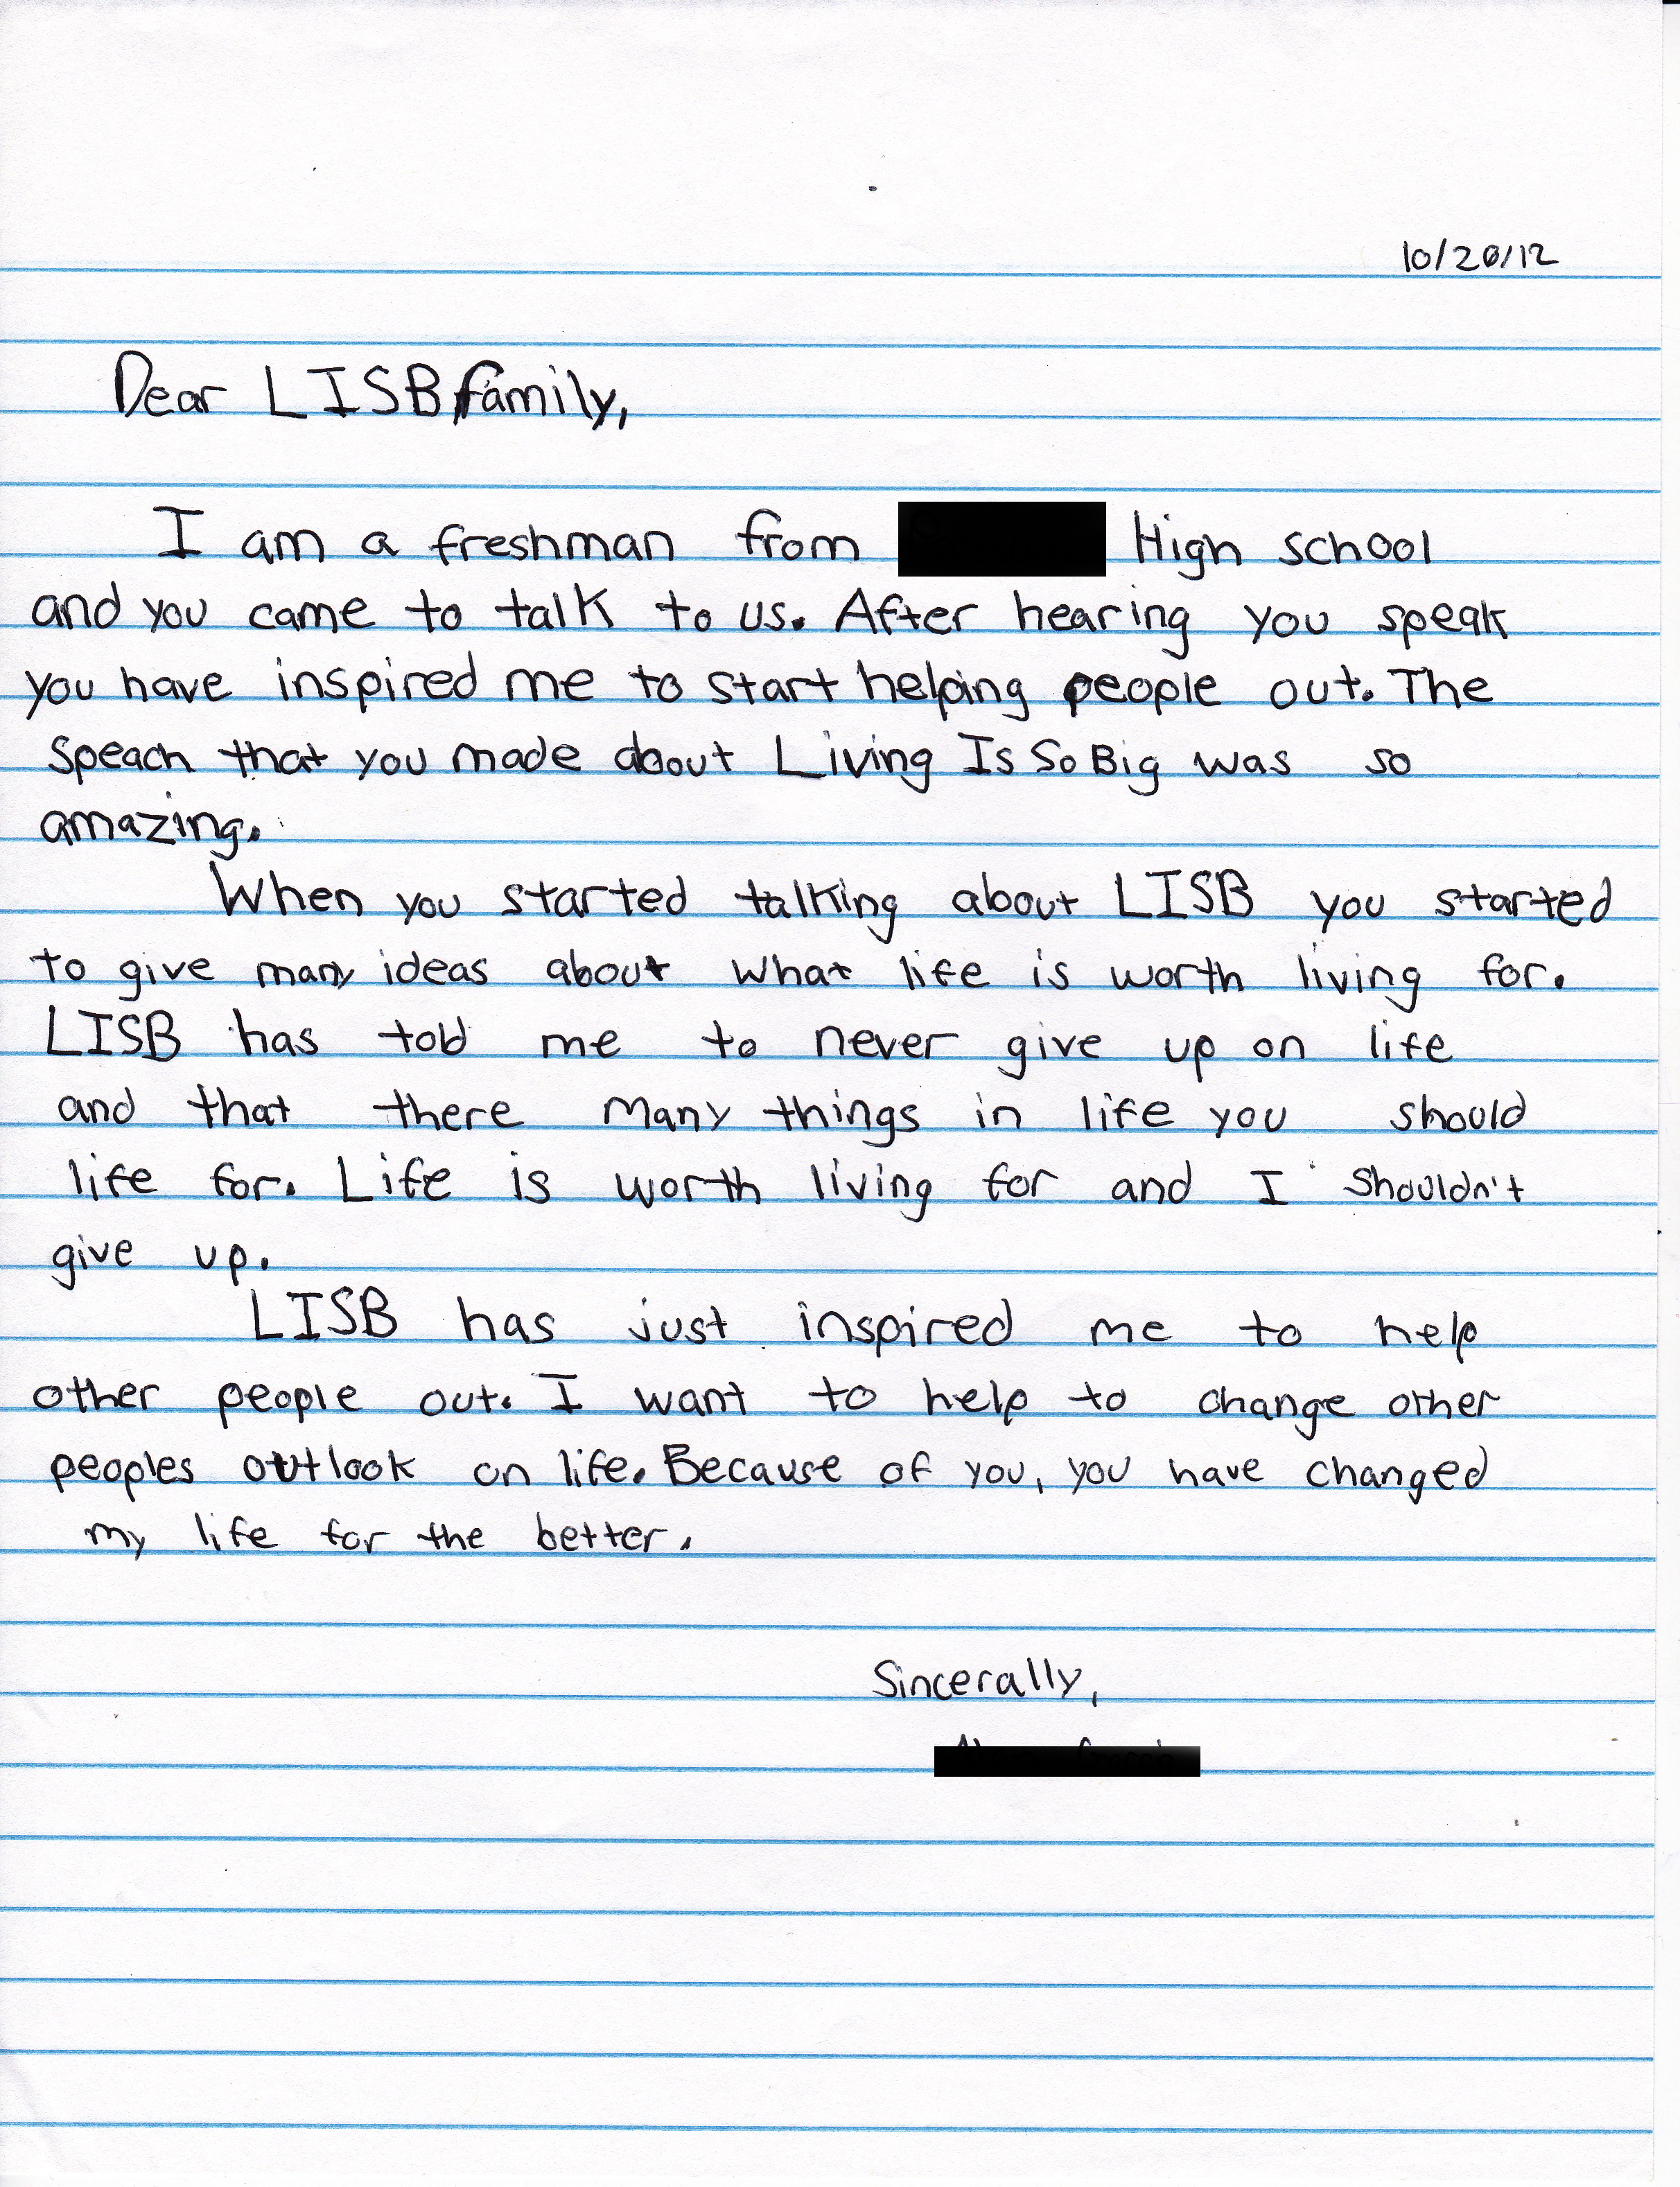 10/20/12
Dear LISB family,
I am a freshman from High school
and you came to talk to us. After hearing you speak
you have inspired me to start helping people out. The
Speach that you made about Living Is So Big was so
amazing.
When you started talking about LISB you started
to give many ideas about what life is worth living for.
LISB has told me to never give up on life
and that there many things in life you should
life for. Life is worth living for and I shouldn't
give up.
LISB has just inspired me to help
other people out. I want to help to change other
peoples outlook on life. Because of you, you have changed
my life for the better.
Sincerally,